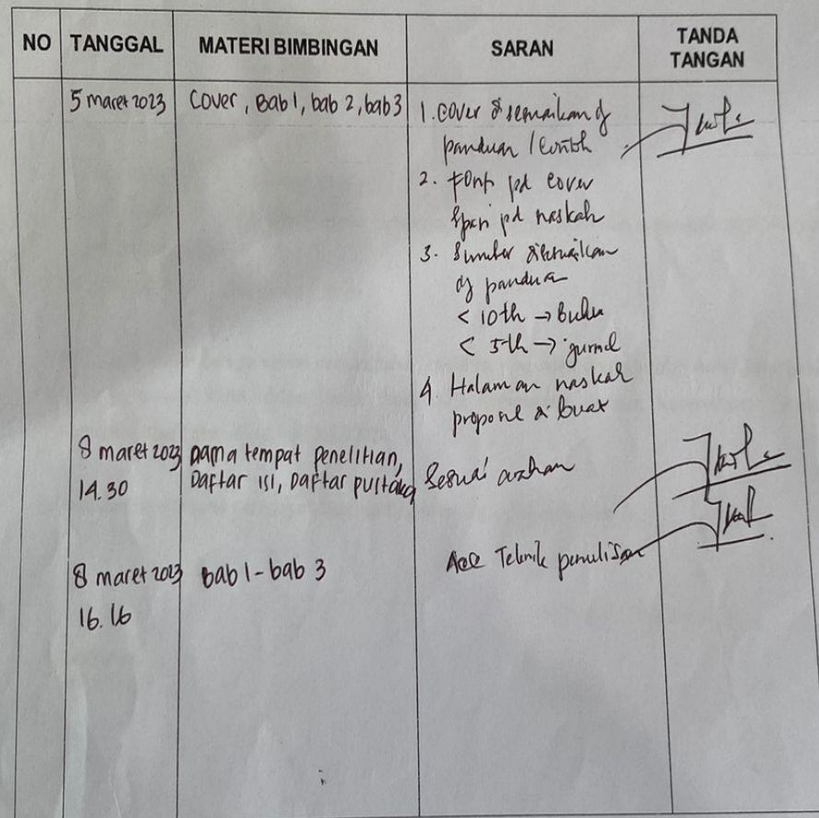 NO TANGGAL MATERI BIMBINGAN SARAN TANDA TANGAN
5 maret 2023 Cover, Bab 1, bab 2, bab 3 1. Cover disesuaikan dg
panduan / Contoh
2. Font pd cover
spn pd naskah
3. Sumber disesuaikan
dg panduan
< 10th → Buku
< 5th → jurnal
4. Halaman naskah
di buat
8 maret 2023 nama tempat penelitian, Sesuai arahan
14.30 Daftar isi, Daftar pustaka
8 maret 2023 bab 1 - bab 3 Acc Teknik penulisan
16.16